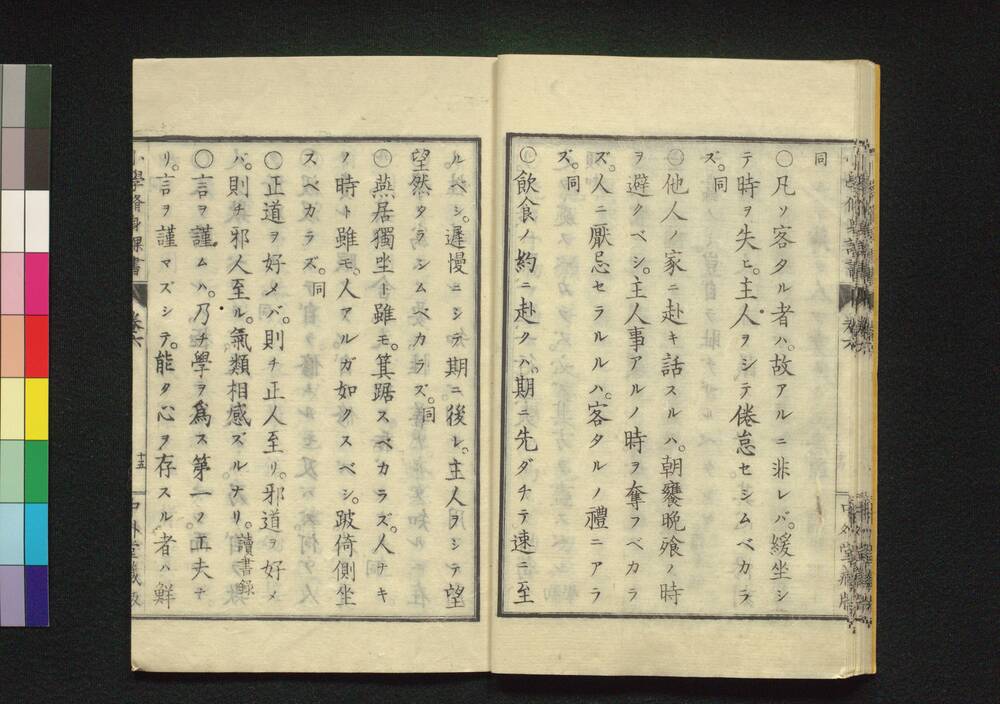 同
〇凡ソ客タル者ハ。故アルニ非レバ。緩坐シ
テ時ヲ失ヒ。主人ヲシテ倦怠セシムベカラ
ズ。同
〇他人ノ家ニ赴キ話スルハ。朝饔晩飱ノ時
ヲ避クベシ。主人事アルノ時ヲ奪フベカラ
ズ。人ニ厭忌セラルルハ。客タルノ禮ニアラ
ズ。同
〇飲食ノ約ニ赴クハ。期ニ先ダチテ速ニ至
ルベシ。遲慢ニシテ期ニ後レ。主人ヲシテ望
望然タラシムベカラズ。同
〇燕居獨坐ト雖モ。箕踞スベカラズ。人ナキ
ノ時ト雖モ。人アルガ如クスベシ。跛倚側坐
スベカラズ。同
〇正道ヲ好メバ。則チ正人至リ。邪道ヲ好メ
バ。則チ邪人至ル。氣類相感ズルナリ。讀書録
〇言ヲ謹ムハ。乃チ學ヲ爲ス第一ノ工夫ナ
リ。言ヲ謹マズシテ。能ク心ヲ存スル者ハ鮮
小學脩身課書 卷六 十五 中外堂藏版